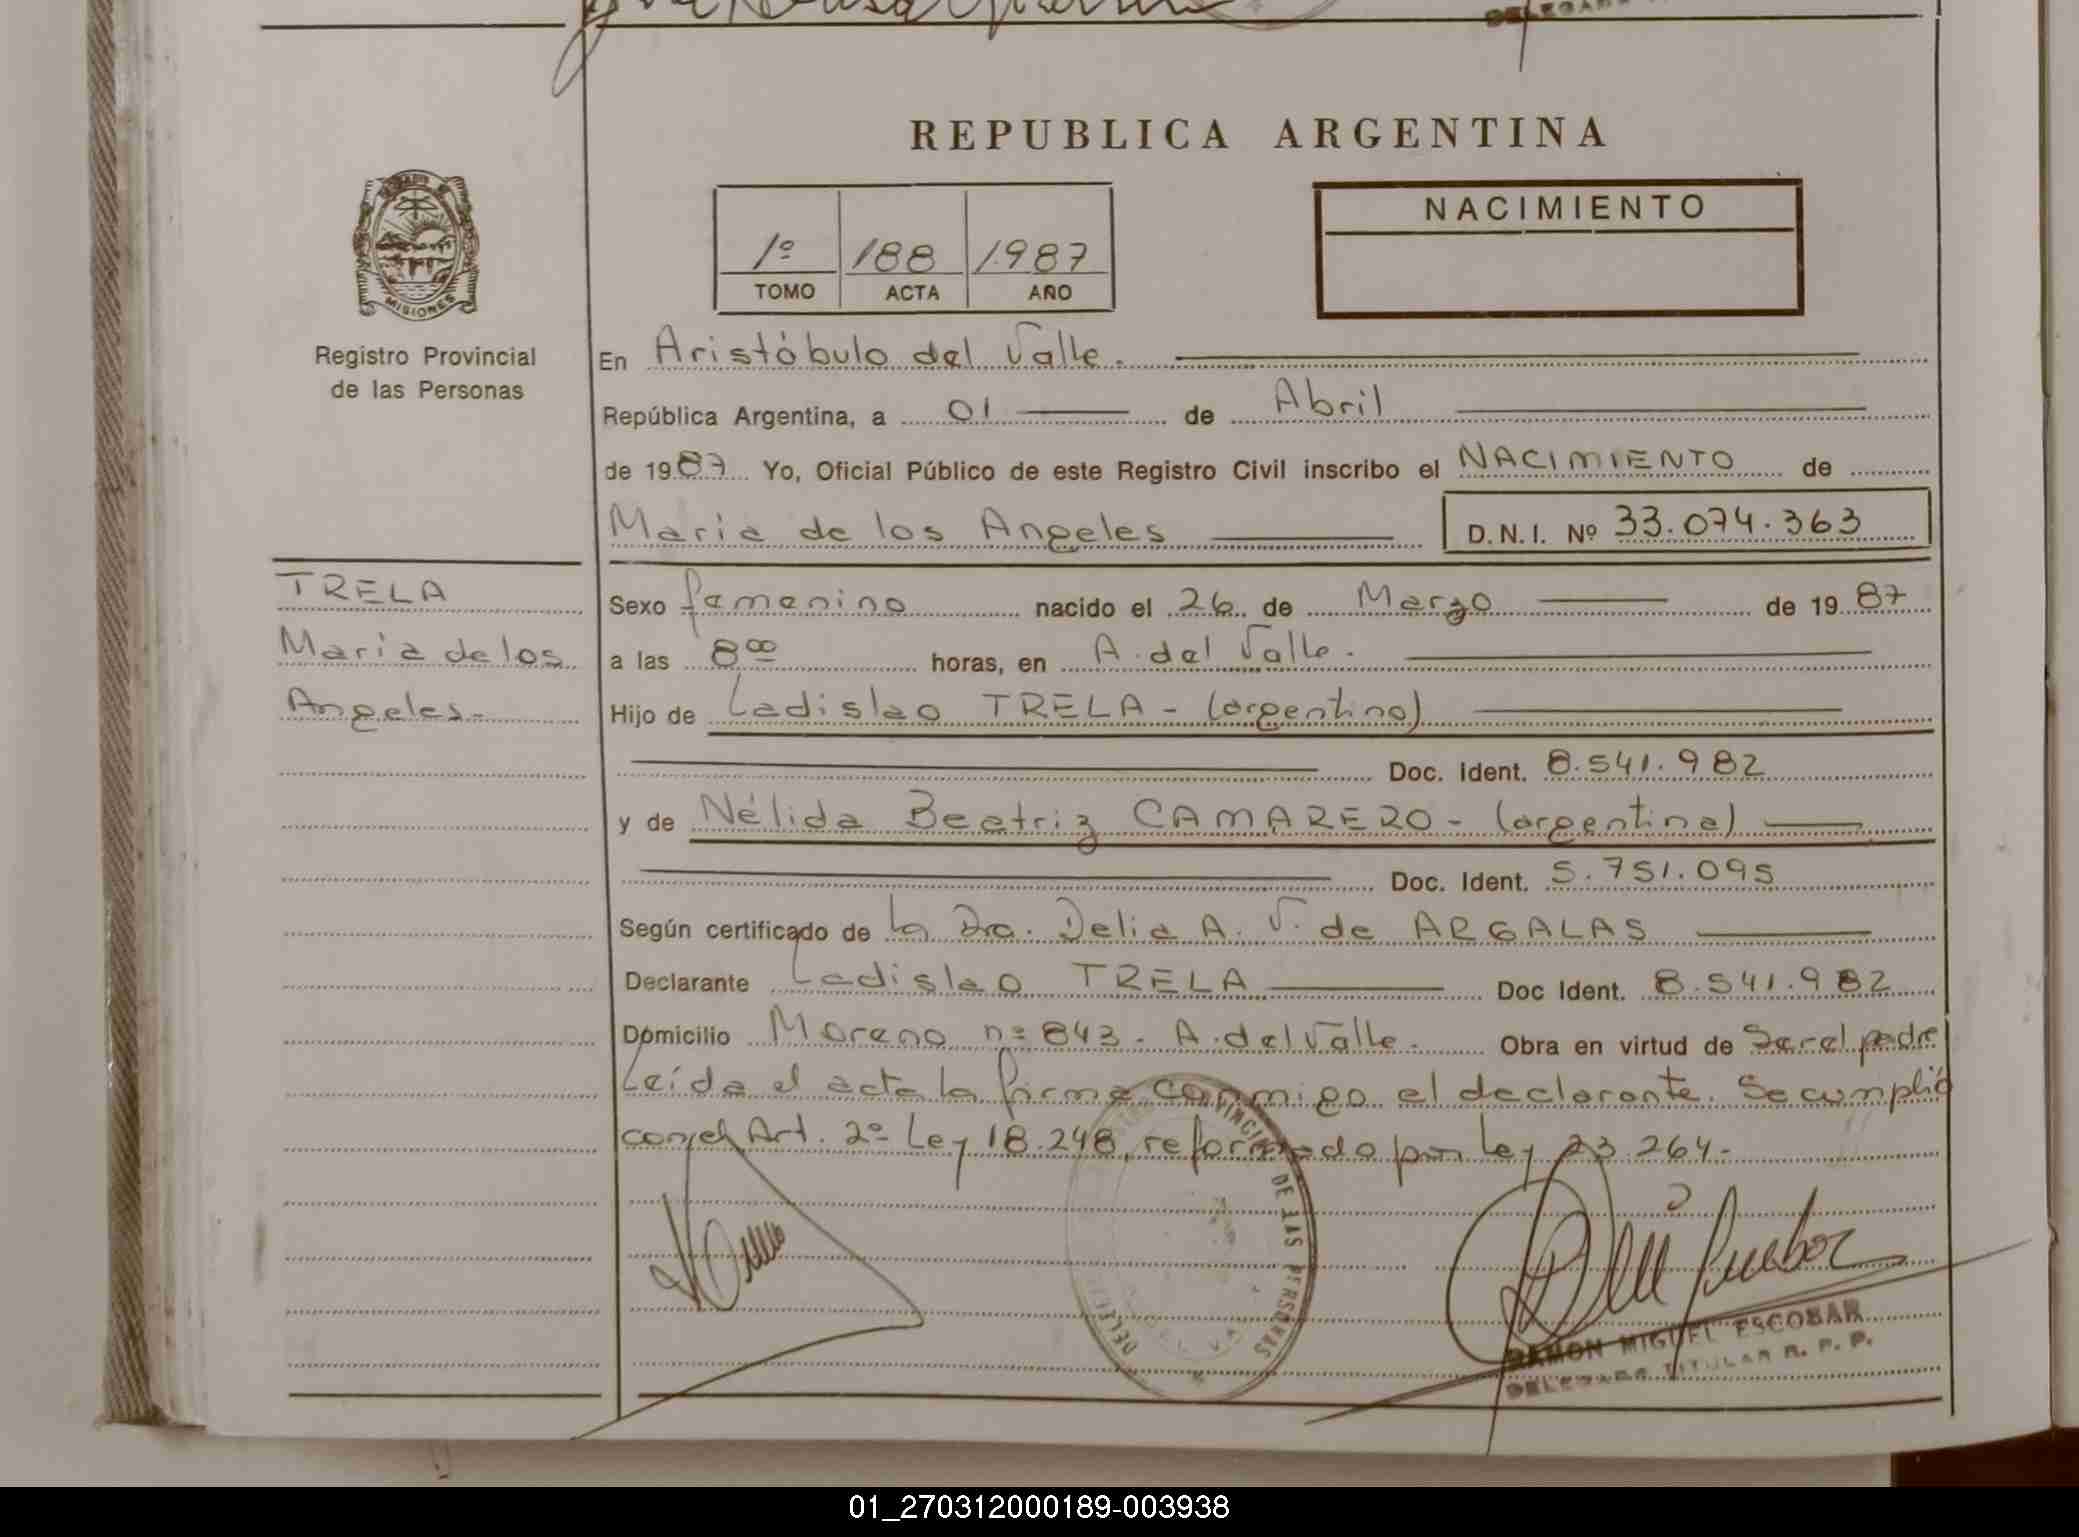 REPUBLICA ARGENTINA
MISIONES
Registro Provincial
de las Personas
1º 188 1987
TOMO ACTA AÑO
NACIMIENTO
En Aristóbulo del Valle.
República Argentina, a 01 de Abril
de 1987 Yo, Oficial Público de este Registro Civil inscribo el NACIMIENTO de
Maria de los Angeles D.N.I. Nº 33.074.363
TRELA
Maria de los
Angeles.-
Sexo femenino nacido el 26 de Marzo de 1987
a las 8⁰⁰ horas, en A. del Valle.
Hijo de Ladislao TRELA - (argentino)
Doc. Ident. 8.541.982
y de Nélida Beatriz CAMARERO - (argentina)
Doc. Ident. 5.751.095
Según certificado de la Dra. Delia A. V. de ARGALAS
Declarante Ladislao TRELA Doc Ident. 8.541.982
Domicilio Moreno nº 843. A. del Valle. Obra en virtud de Ser el padre
Leída el acta la firma conmigo el declarante. Se cumplió
con el Art. 2º Ley 18.248, reformado por Ley 23.264.-
DE LAS PERSONAS
RAMON MIGUEL ESCOBAR
DELEGADO TITULAR R. P. P.
01_270312000189-003938